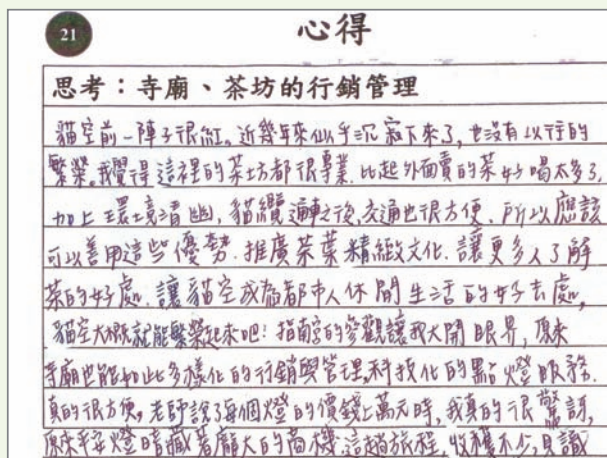 21
心得
思考：寺廟、茶坊的行銷管理
貓空前一陣子很紅。近幾年來似乎沉寂下來了，也沒有以往的
繁榮。我覺得這裡的茶坊都很專業，比起外面賣的茶好喝太多了，
加上環境清幽，貓纜通車之後，交通也很方便，所以應該
可以善用這些優勢，推廣茶葉精緻文化，讓更多人了解
茶的好處，讓貓空成為都市人休閒生活的好去處，
貓空大概就能繁榮起來吧！指南宮的參觀讓我大開眼界，原來
寺廟也能如此多樣化的行銷與管理，科技化的點燈服務，
真的很方便。老師說了每個燈的價錢上萬元時，我真的很驚訝，
原來平安燈暗藏著龐大的商機，這趟旅程，收穫不少，見識